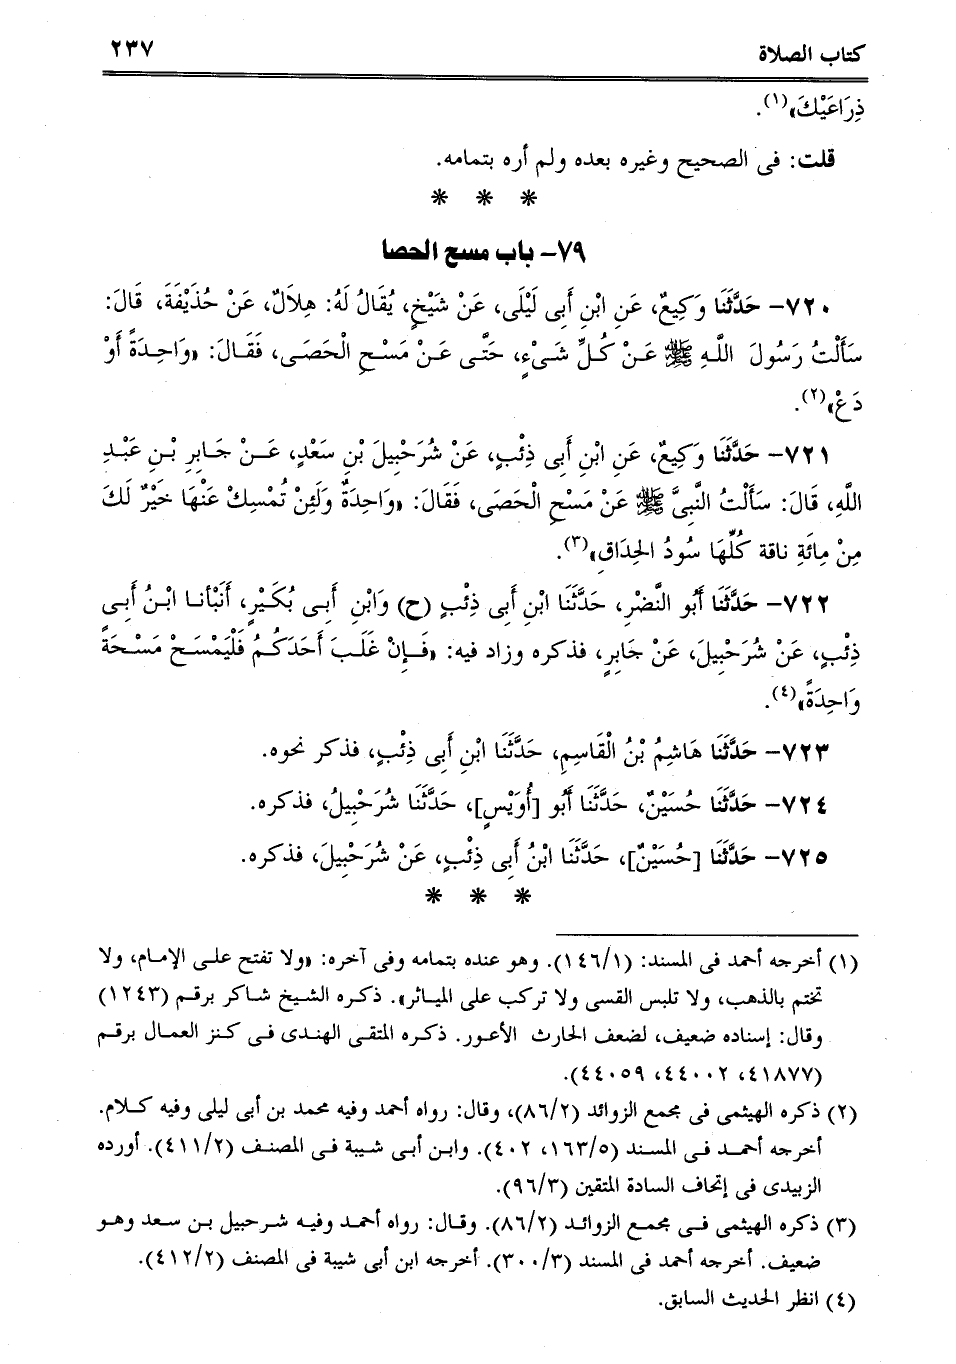 كتاب الصلاة ٢٣٧
ذِرَاعَيْكَ»(١).
قلت: فى الصحيح وغيره بعده ولم أره بتمامه.
* * *
٧٩- باب مسح الحصا
٧٢٠- حَدَّثَنَا وَكِيعٌ، عَنِ ابْنِ أَبِى لَيْلَى، عَنْ شَيْخٍ، يُقَالُ لَهُ: هِلَالٌ، عَنْ حُذَيْفَةَ، قَالَ:
سَأَلْتُ رَسُولَ اللَّهِ ﷺ عَنْ كُلِّ شَىْءٍ، حَتَّى عَنْ مَسْحِ الْحَصَى، فَقَالَ: «وَاحِدَةً أَوْ
دَعْ»(٢).
٧٢١- حَدَّثَنَا وَكِيعٌ، عَنِ ابْنِ أَبِى ذِئْبٍ، عَنْ شُرَحْبِيلَ بْنِ سَعْدٍ، عَنْ جَابِرِ بْنِ عَبْدِ
اللَّهِ، قَالَ: سَأَلْتُ النَّبِىَّ ﷺ عَنْ مَسْحِ الْحَصَى، فَقَالَ: «وَاحِدَةٌ وَلَئِنْ تُمْسِكْ عَنْهَا خَيْرٌ لَكَ
مِنْ مِائَةِ ناقة كُلِّهَا سُودُ الحِدَاقِ»(٣).
٧٢٢- حَدَّثَنَا أَبُو النَّضْرِ، حَدَّثَنَا ابْنِ أَبِى ذِئْبٍ (ح) وَابْنِ أَبِى بُكَيْرٍ، أَنْبَأنا ابْنُ أَبِى
ذِئْبٍ، عَنْ شُرَحْبِيلَ، عَنْ جَابِرٍ، فذكره وزاد فيه: «فَإِنْ غَلَبَ أَحَدَكُمُ فَلْيَمْسَحْ مَسْحَةً
وَاحِدَةً»(٤).
٧٢٣- حَدَّثَنَا هَاشِمُ بْنُ الْقَاسِمِ، حَدَّثَنَا ابْنِ أَبِى ذِئْبٍ، فذكر نحوه.
٧٢٤- حَدَّثَنَا حُسَيْنٌ، حَدَّثَنَا أَبُو [أُوَيْسٍ]، حَدَّثَنَا شُرَحْبِيلُ، فذكره.
٧٢٥- حَدَّثَنَا [حُسَيْنٌ]، حَدَّثَنَا ابْنُ أَبِى ذِئْبٍ، عَنْ شُرَحْبِيلَ، فذكره.
* * *
(١) أخرجه أحمد فى المسند: (١٤٦/١). وهو عنده بتمامه وفى آخره: «ولا تفتح على الإمام، ولا
تختم بالذهب، ولا تلبس القسى ولا تركب على المياثر». ذكره الشيخ شاكر برقم (١٢٤٣)
وقال: إسناده ضعيف، لضعف الحارث الأعور. ذكره المتقى الهندى فى كنز العمال برقم
(٤١٨٧٧، ٤٤٠٠٢، ٤٤٠٥٩).
(٢) ذكره الهيثمى فى مجمع الزوائد (٨٦/٢)، وقال: رواه أحمد وفيه محمد بن أبى ليلى وفيه كلام.
أخرجه أحمد فى المسند (١٦٣/٥، ٤٠٢). وابن أبى شيبة فى المصنف (٤١١/٢). أورده
الزبيدى فى إتحاف السادة المتقين (٩٦/٣).
(٣) ذكره الهيثمى فى مجمع الزوائد (٨٦/٢). وقال: رواه أحمد وفيه شرحبيل بن سعد وهو
ضعيف. أخرجه أحمد فى المسند (٣٠٠/٣). أخرجه ابن أبى شيبة فى المصنف (٤١٢/٢).
(٤) انظر الحديث السابق.